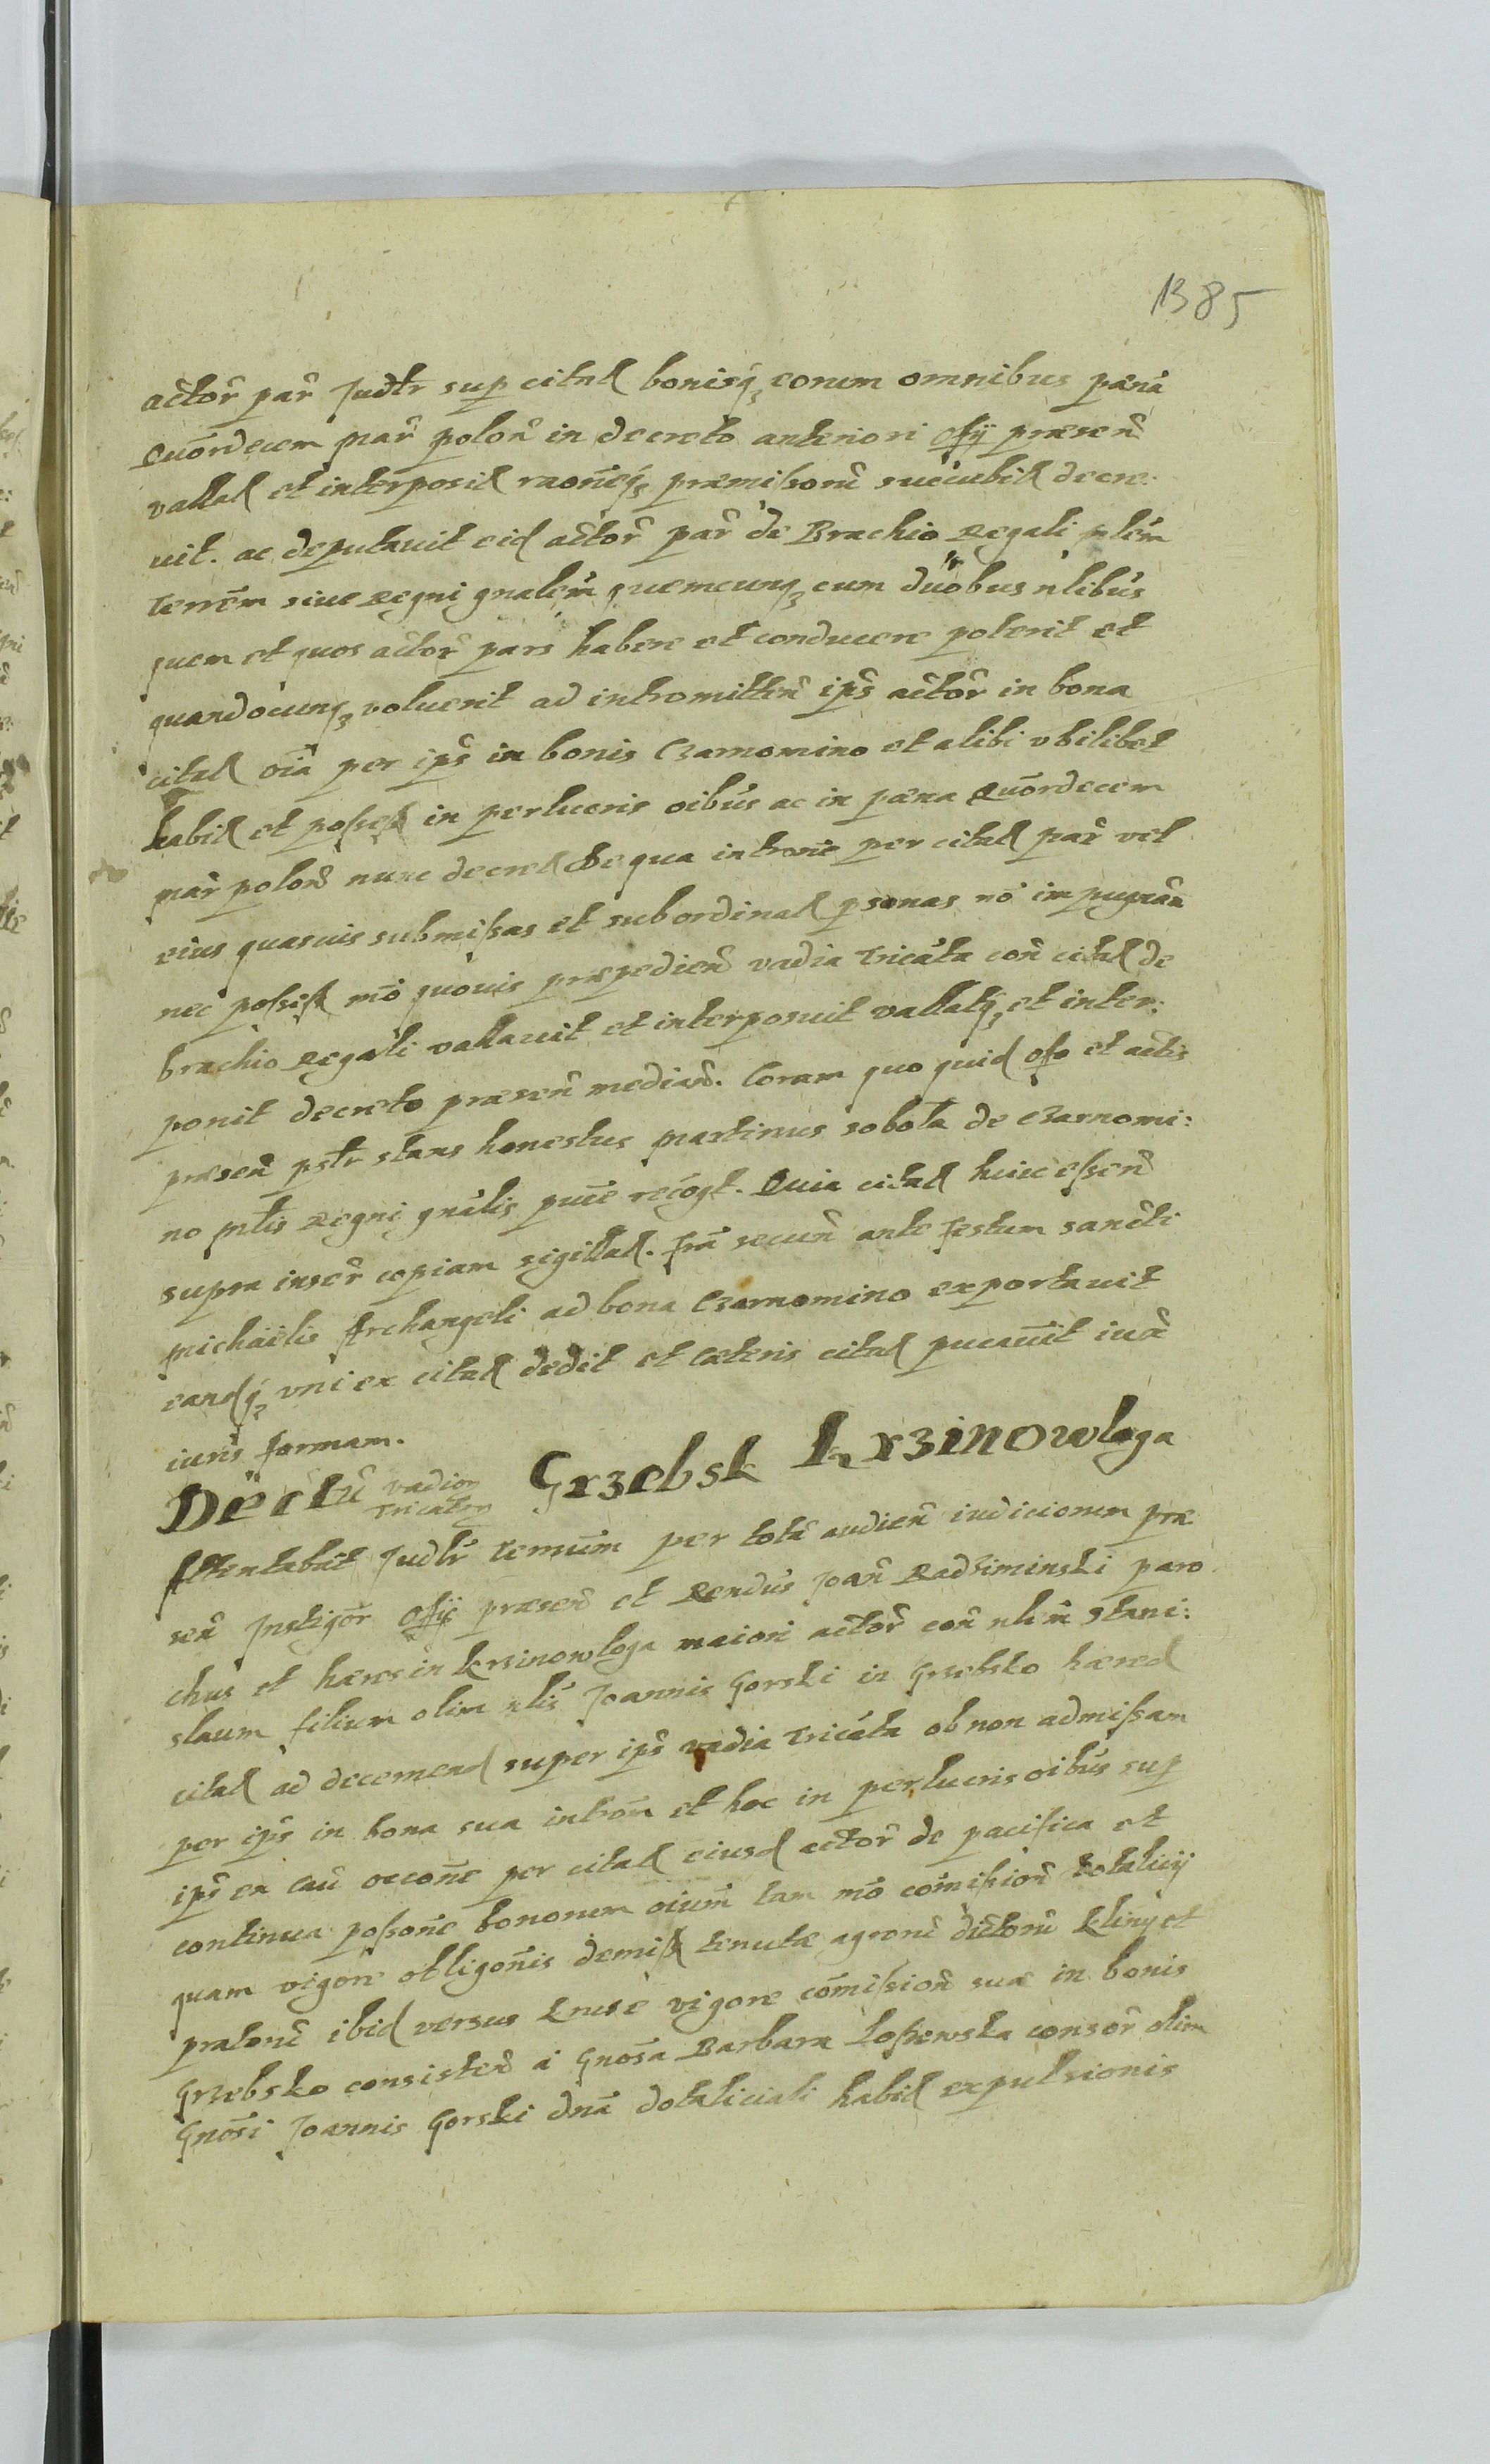 1385
actor̃ par̃ Judtr sup citat bonisq, eorum omnibus pæna
Quõrdecem mar̃ polon̄ in decreto anteriori offij præsen̄
vallat et interposit raõneq, præmissorũ succubit decre:
uit. ac deputauit eid actor̃ par̃ de Brachio Regali mlẽm
Terrẽm siue Regni gnalẽm quemcunq, cum duobus nlibus
quem et quos actor̃ pars habere et conducere poterit et
quandocunq, voluerit ad intromitten̄ ips̃ actor̃ in bona
citat oĩa per ips̃ in bonis Czarnomino et alibi vbilibet
habit et possess in perlucris oibus ac in pæna Quõrdecem
mar̃ polon̄ nunc decret De qua introne per citat par̃ vel
eius quasuis submissas et subordinat psonas nõ impugnãn
nec possess mõ quouis præpedien̄ vadia Tricata con̄ citat de
brachio Regali vallauit et interposuit vallatq, et inter:
ponit decreto præsen̄ median̄. Coram quo quid offo et actis
præsen̄ pstr stans honestus Martinus Sobota de Czarnomi:
no mlis Regni gnalis puce recogt. Quia citat huic essen̄
supra inser̃ copiam sigillat. fria secun̄ ante Festum sancti
Michaelis Archangeli ad bona Czarnomino exportauit
eandq, vni ex citat dedit et cæteris citat pucauit iux̃
iuris formam.
Dectũ vadior
Tricator Grzebsk Krzinowloga
Attentabat Judtr Terrum per totã audien̄ iudiciorum præ
sen̄ Instigor̃ offij præsen̄ et Rendus Joan̄ Radziminski paro
chus et hæres in Krzinowloga maiori actor̃ con̄ nlem Stani:
slaum filium olim nlis Joannis Gorski in Grzebsko hæred
citat ad decernend super ips̃ vadia Tricata ob non admissam
per ips̃ in bona sua intrõm et hoc in perlucris oibus sup
ips̃ ex cau occõne per citat eiusd actor̃ de pacifica et
continua possõne bonorum oium tam mõ comission̄ dotalicij
quam vigore obligonis demiss tenutæ agrorũ dictorũ kliny et
pratorũ ibid versus Kruse vigore comission̄ suæ in bonis
Grzebsko consisten̄ a Gnosa Barbara Lossewska consor̃ olim
Gnosi Joannis Gorski dña dotaliciali habit expulsionis